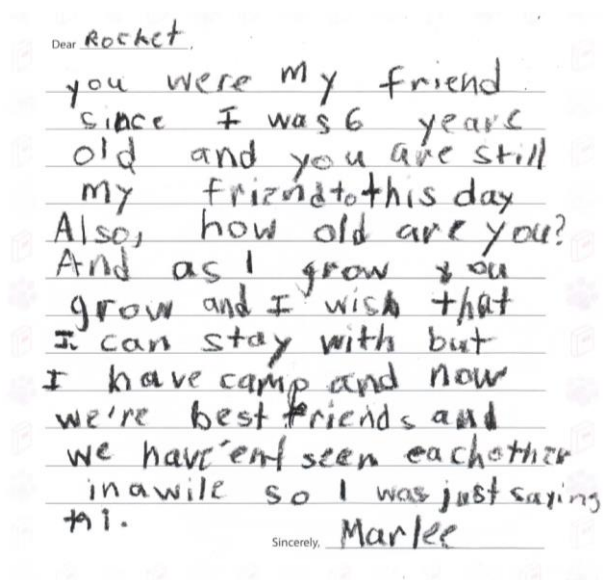 Dear Rocket,
you were my friend
since I was 6 years
old and you are still
my friend to this day
Also, how old are you?
And as I grow you
grow and I wish that
I can stay with but
I have camp and now
we're best friends and
we have'ent seen eachother
in a wile so I was just saying
hi.
Sincerely, Marlee